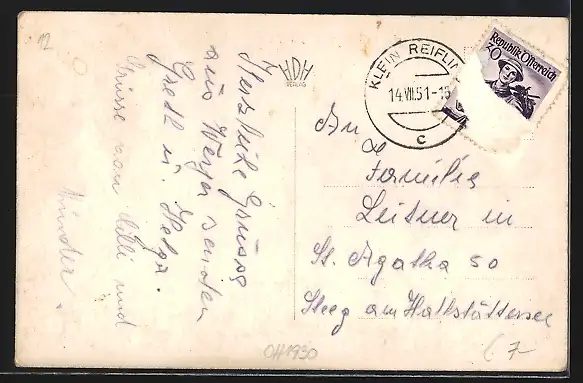 12
Herzliche Grüsse
aus Weyer senden
Gretl u. Helga.
Grüsse von Lilli und
Kinder.
HDH
VERLAG
KLEIN REIFLIN
14.VII.51-15
c
Republik Österreich
An
Familie
Leitner in
St. Agatha 50
Steeg am Hallstättersee
OH1930
7-